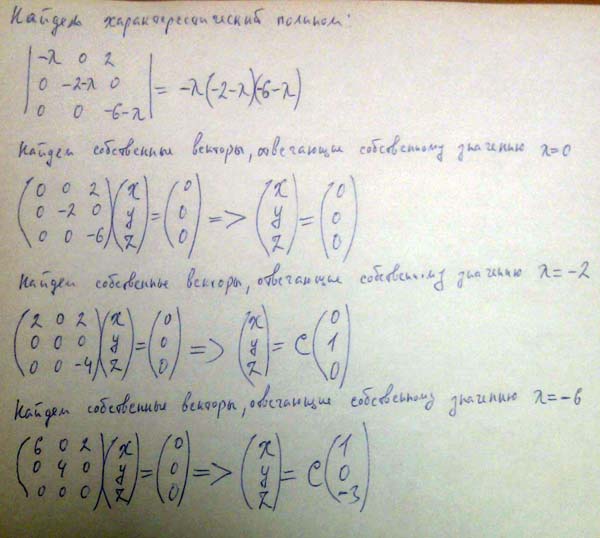 Найдем характеристический полином:
|-λ 0 2|
|0 -2-λ 0| = -λ(-2-λ)(-6-λ)
|0 0 -6-λ|
Найдем собственные векторы, отвечающие собственному значению λ=0
(0 0 2)(x) (0) (x) (0)
(0 -2 0)(y)=(0) => (y)=(0)
(0 0 -6)(z) (0) (z) (0)
Найдем собственные векторы, отвечающие собственному значению λ=-2
(2 0 2)(x) (0) (x) (0)
(0 0 0)(y)=(0) => (y)=C(1)
(0 0 -4)(z) (0) (z) (0)
Найдем собственные векторы, отвечающие собственному значению λ=-6
(6 0 2)(x) (0) (x) (1)
(0 4 0)(y)=(0) => (y)=C(0)
(0 0 0)(z) (0) (z) (-3)